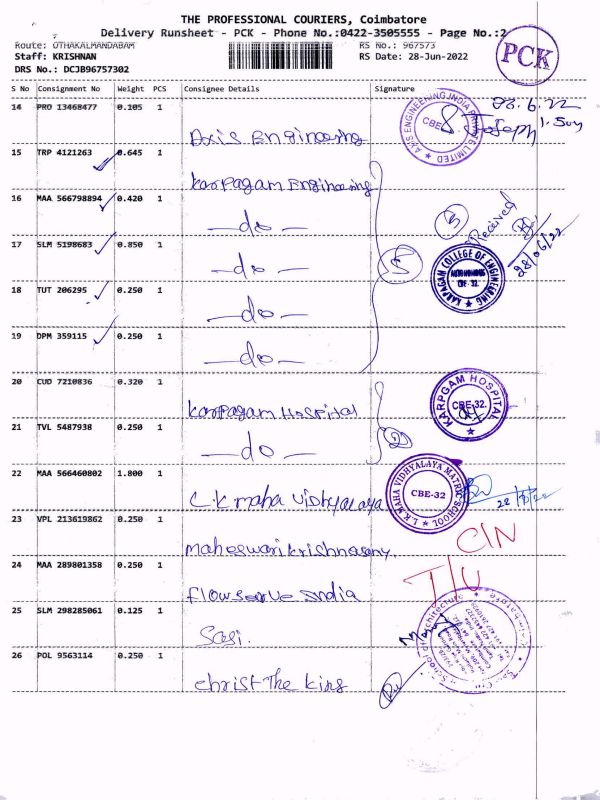 THE PROFESSIONAL COURIERS, Coimbatore
Delivery Runsheet - PCK - Phone No.:0422-3505555 - Page No.:2
Route: OTHAKALMANDABAM
RS No.: 967573
Staff: KRISHNAN
RS Date: 28-Jun-2022
DRS No.: DCJB96757302
PCK
S No Consignment No Weight PCS Consignee Details Signature
14 PRO 13468477 0.105 1 Axis Engineering
AXIS ENGINEERING INDIA PRIVATE LIMITED
S. Joseph
15 TRP 4121263 0.645 1 Karpagam Engineering
16 MAA 566798894 0.420 1 —do—
17 SLM 5198683 0.850 1 —do—
5
Received
28/06/22
KARPAGAM COLLEGE OF ENGINEERING
AUTONOMOUS
CBE - 32.
18 TUT 206295 0.250 1 —do—
19 DPM 359115 0.250 1 —do—
20 CUD 7210836 0.320 1 Karpagam Hospital
KARPAGAM HOSPITAL
CBE-32.
21 TVL 5487938 0.250 1 —do—
2
22 MAA 566460802 1.800 1 L.K maha vidhyalaya
L.K. MAHA VIDHYALAYA MATRIC SCHOOL
CBE-32
23 VPL 213619862 0.250 1 maheswari krishnasamy.
C/N
24 MAA 289801358 0.250 1 flowserve India
T/U
25 SLM 298285061 0.125 1 Sasi.
School of Architecture
26 POL 9563114 0.250 1 christ The king